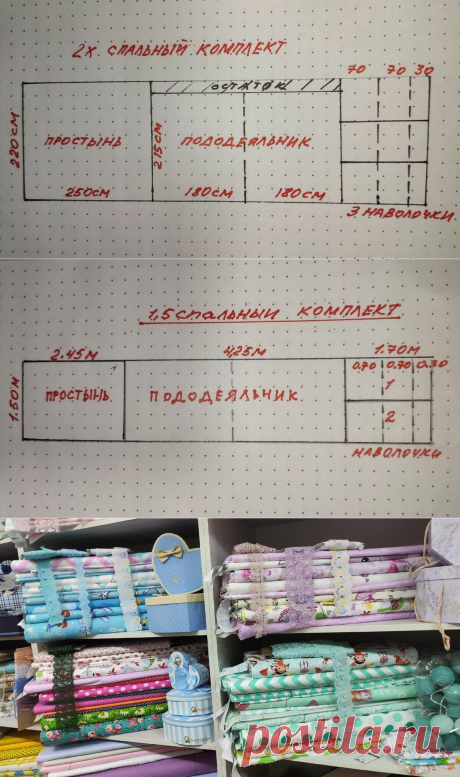 2х. СПАЛЬНЫЙ КОМПЛЕКТ
70 70 30
ОСТАТОК
220СМ ПРОСТЫНЬ 215СМ ПОДОДЕЯЛЬНИК
250СМ 180СМ 180СМ
3 НАВОЛОЧКИ
1,5 СПАЛЬНЫЙ КОМПЛЕКТ
2.45М 4,25М 1.70М
0.70 0.70 0.30
1.50М ПРОСТЫНЬ ПОДОДЕЯЛЬНИК 1
2
НАВОЛОЧКИ
postila.ru